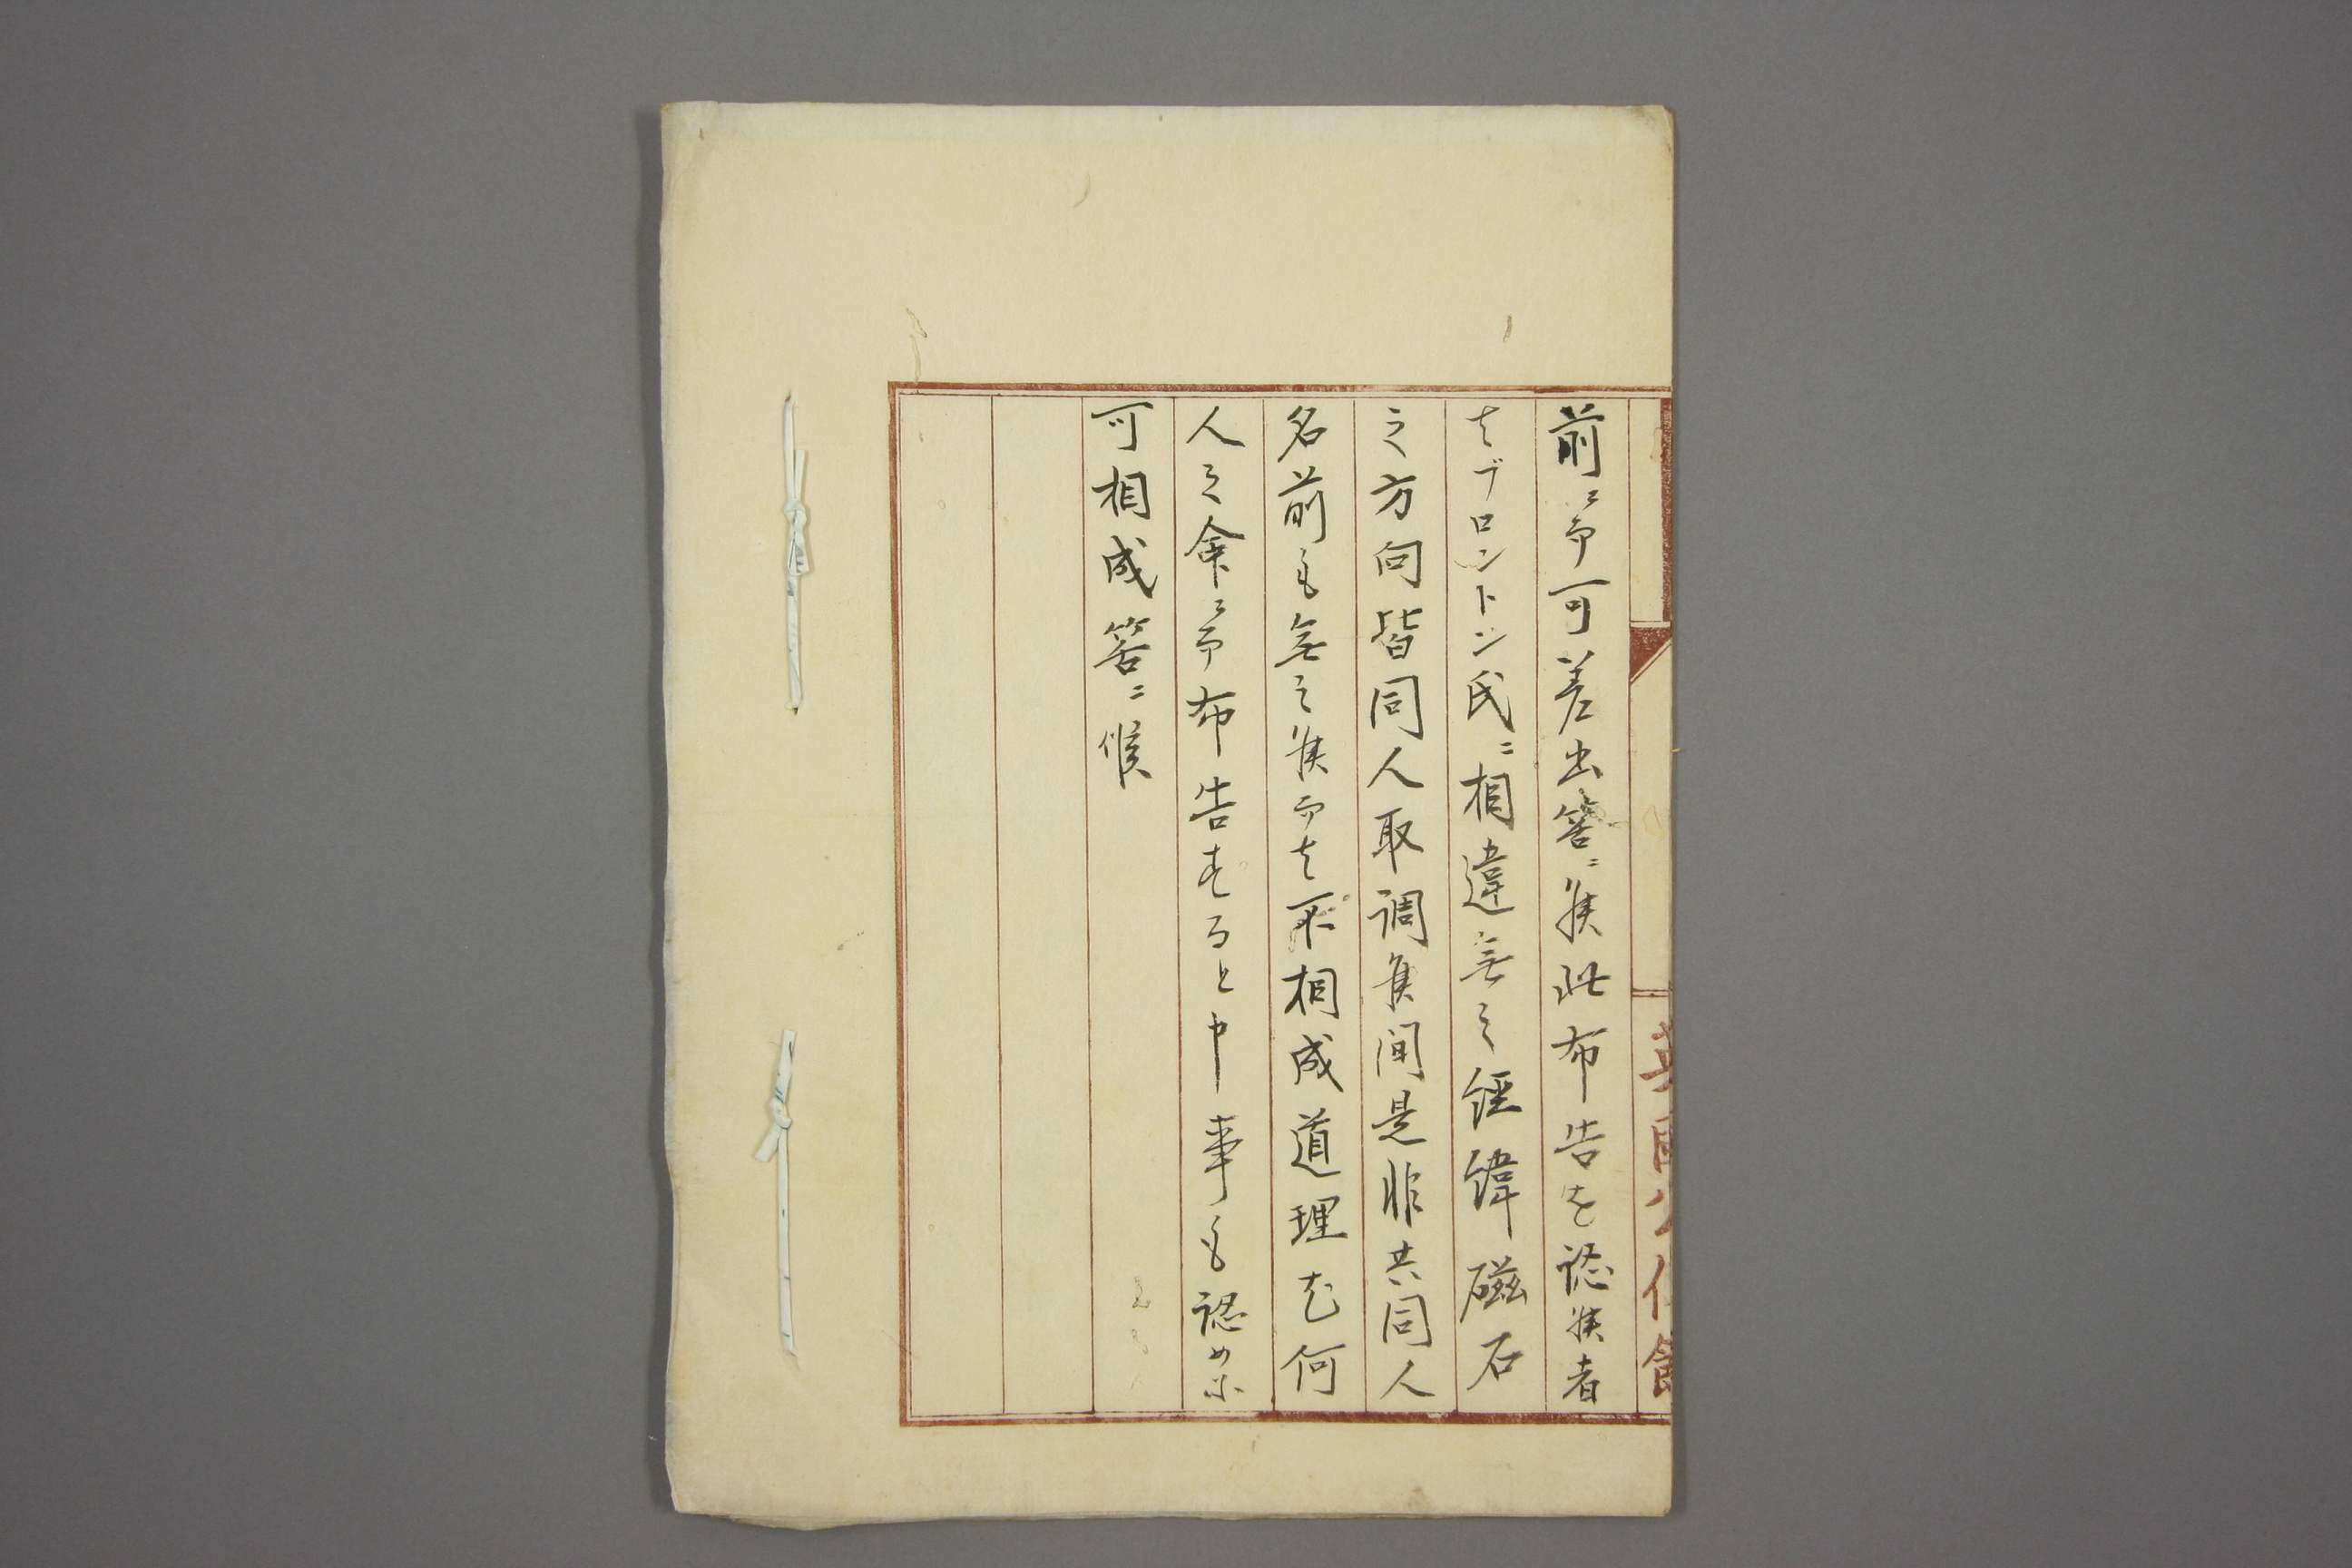 英国公使館
前ニ而可差出筈ニ候此布告を認候者
者ブロントン氏ニ相違無之経緯磁石
之方向皆同人取調候間是非共同人
名前も無之候而者不相成道理尤何
人之命ニ而布告するとか申事も認め不
可相成筈ニ候